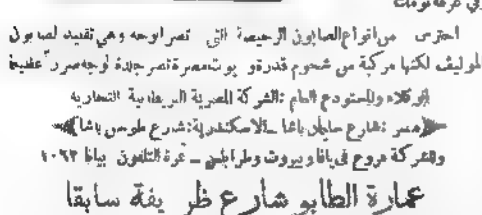 في غرفة نومك
احترس من انواع الصابون الرخيصة التي تضر لوجه وهي تقليد لصابون
الموليف لكنها مركبة من شحوم قذرة و مضرة تضر جلدة لوجه ضرر عظيما
الوكلاء والمستودع العام : الشركة المصرية البريطانية التجارية
مصر : شارع سليمان باشا – الاسكندرية : شارع طوسن باشا
وللشركة فروع في يافا وبيروت وطرابلس – نمرة التلفون بيافا ١٠٦٣
عمارة الطابو شارع ظريفة سابقا